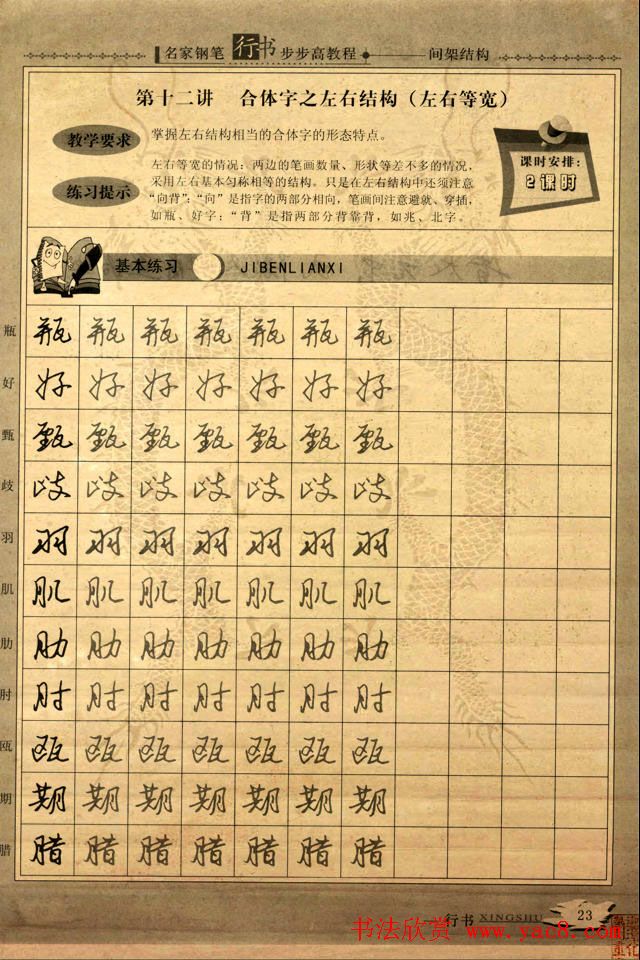 名家钢笔行书步步高教程 间架结构
第十二讲 合体字之左右结构（左右等宽）
教学要求 掌握左右结构相当的合体字的形态特点。
练习提示 左右等宽的情况：两边的笔画数量、形状等差不多的情况，
采用左右基本匀称相等的结构。只是在左右结构中还须注意
“向背”：“向”是指字的两部分相向，笔画间注意避就、穿插，
如瓶、好字；“背”是指两部分背靠背，如兆、北字。
课时安排：
2课时
基本练习 JIBENLIANXI
瓶 瓶 瓶 瓶 瓶 瓶 瓶 瓶
好 好 好 好 好 好 好 好
甄 甄 甄 甄 甄 甄 甄 甄
歧 歧 歧 歧 歧 歧 歧 歧
羽 羽 羽 羽 羽 羽 羽 羽
肌 肌 肌 肌 肌 肌 肌 肌
肋 肋 肋 肋 肋 肋 肋 肋
肘 肘 肘 肘 肘 肘 肘 肘
瓯 瓯 瓯 瓯 瓯 瓯 瓯 瓯
期 期 期 期 期 期 期 期
腊 腊 腊 腊 腊 腊 腊 腊
行书 XINGSHU 23
书法欣赏 www.yac8.com